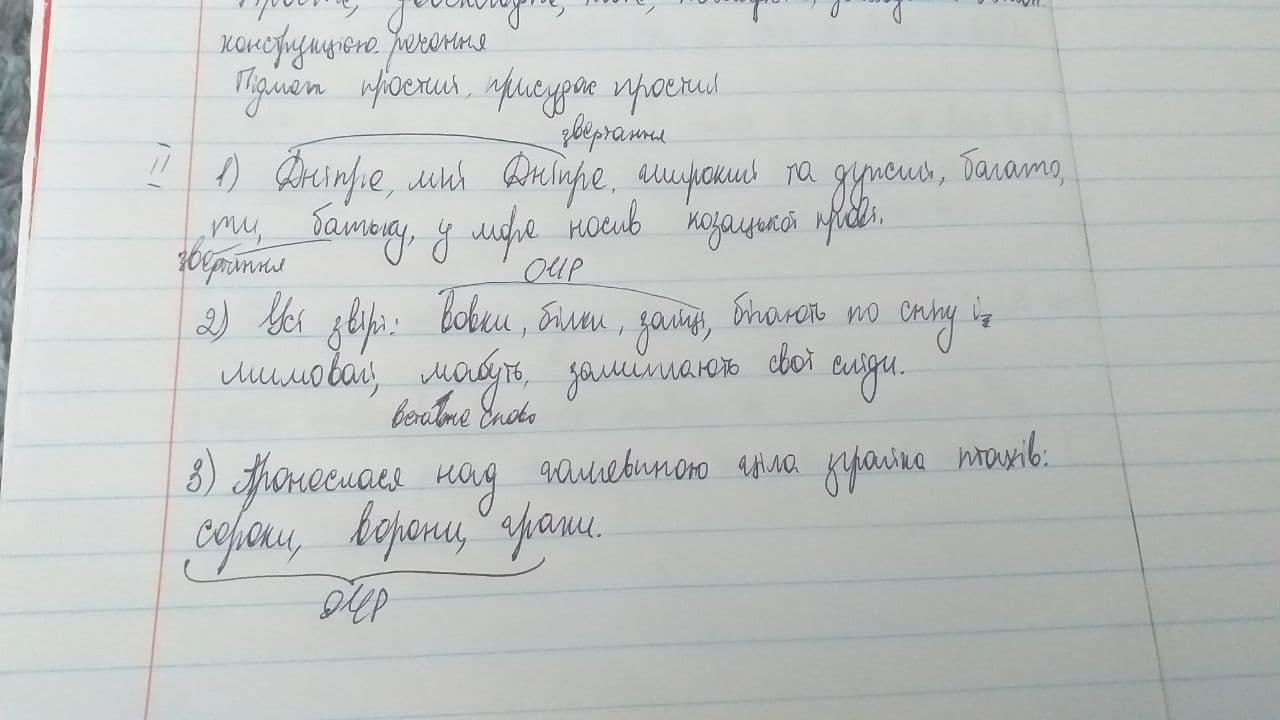 Просте,
конструкцією речення
Підмет простий, присудок простий
звертання
II 1) Дніпре, мій Дніпре, широкий та дужий, багато,
ти, батьку, у море носив козацької крові.
звертання ОЧР
2) Усі звірі: вовки, білки, зайці, бігають по снігу і
мимоволі, мабуть, залишають свої сліди.
вставне слово
3) Пронеслася над галявиною ціла зграйка птахів:
сороки, ворони, граки.
ОЧР